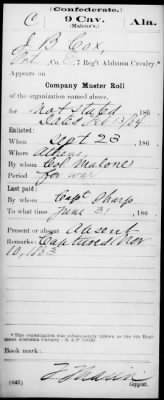 (Confederate.)
C 9 Cav. Ala.
(Malone's.)
J B Cox
Pvt, Co. E, 7 Reg't Alabama Cavalry.*
Appears on
Company Muster Roll
of the organization named above,
for Not Stated, 186
Dated Feb 13/64
Enlisted:
When Sept 23, 186
Where Athens
By whom Col Malone
Period for war
Last paid:
By whom Capt Sharp
To what time June 31, 186
Present or absent Absent
Remarks: Captured Nov
10, 1863
*This organization was subsequently known as the 9th Regiment Alabama Cavalry.
Book mark:
(642)
Copyist.